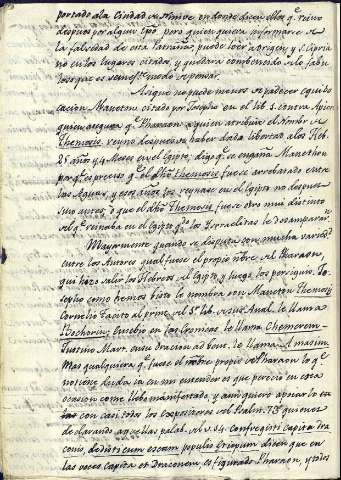 portado à la Ciudad de Ninive, en donde dicen ellos qe. reino
despues por algun tpo. pero quien quiera informarse de
la falsedad de esta patraña, puede leer à Origen, y S. Cipria
no en los lugares citados, y quedara combencido de lo fabu
loso qe. es este modo de pensar.
Asi que no puede menos de padecer equibo
cacion Maneton citado por Josepho en el lib. 1. contra Apion
quien asegura qe. Pharaon, à quien atribuie el Nombre de
Themosis reyno despues de haber dada libertad a los Heb.
25 años y 4 Meses en el Egipto, digo qe. se engaña Manethon
porqe. es preciso qe. ò el dho. Themosis fuese arrebatado entre
las Aguas, y esos años los reynase en el Egipto no despues
sino antes, ò que el dho. Themosis fuese otro mui distinto
del qe. reinaba en el Egipto qdo. los Ysraelitas le desampararon
Mayormente quando se disputa con mucha varied.
entre los Autores qual fuese el propio nbre. del Pharaon
que hizo salir los Hebreos del Egipto, y luego los persiguio. Jo
sepho como hemos visto lo nombra con Maneton Themosis
Cornelio Tacito al princ. del 5. lib. de sus Anal. le llama
Bochorim; Eusebio en los Cronicos le llama Chencrem
Justino Mart. en su oracion ad Gent. le llama Amasim
Mas qualquiera qe. fuese el nombre propio del Pharaon lo qe.
no tiene duda en mi entender es que perecio en esta
ocasion como he manifestado, y aun quiero apoiarlo
con casi todos los Expositores del Psalm. 73 quienes
declarando aquellas palab. del v. 14. confregisti capita Dra
conis, dedisti eum escam populis Etiopum dicen que en
las voces capita et Draconem, es figurado Pharaon, y todos